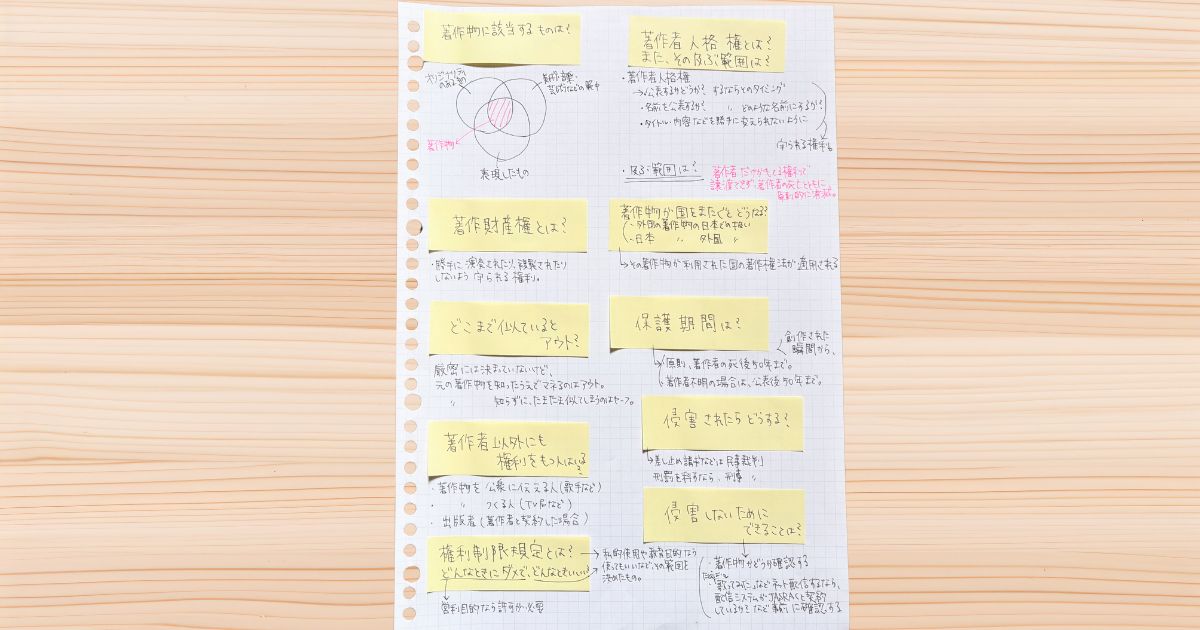 著作物に該当するものは?
オリジナリティ
のあるもの
芸術などの範中
著作物
表現したもの
著作財産権とは?
・勝手に演奏されたり、複製されたり
しないよう守られる権利。
どこまで似ていると
アウト?
厳密には決まっていないけど、
元の著作物を知ったうえでマネるのはアウト。
〃 知らずに、たまたま似てしまうのはセーフ。
著作者以外にも
権利をもつ人はいる?
・著作物を公衆に伝える人(歌手など)
・ 〃 つくる人(TV局など)
・出版者(著作者と契約した場合)
権利制限規定とは?
どんなときにダメで、どんなときいい?
→私的使用や教育目的なら
使ってもいいなど、その範囲を
決めたもの。
営利目的なら許すが必要
著作者人格権とは?
また、その及ぶ範囲は?
・著作者人格権
→・公表するかどうか?するならそのタイミング
・名前を公表するか? 〃 どのような名前にするか?
・タイトル・内容などを勝手に変えられないように
守られる権利。
・及ぶ範囲は?
著作者だけがもてる権利で
譲渡できず、著作者の死亡とともに、
原則的に消滅。
著作物が国をまたぐとどうなる?
・外国の著作物の日本での扱い
・日本 〃 外国 〃
→その著作物が利用された国の著作権法が適用される
保護期間は?
創作された
瞬間から、
→原則、著作者の死後50年まで。
著作者不明の場合は、公表後50年まで。
侵害されたらどうする?
→差し止め請求などは民事裁判
刑罰を科すなら、刑事 〃
侵害しないために
できることは?
・著作物かどうか確認する
・「歌ってみた」などネット配信するなら、
配信システムがJASRACと契約
しているか?など事前に確認する